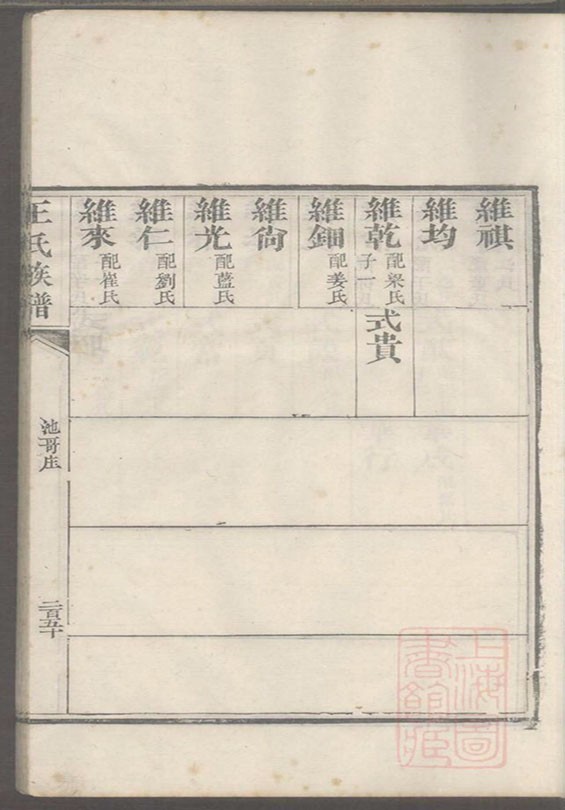 維祺
維均
維乾 配梁氏 子一
式貴
維鈿 配姜氏
維尙
維光 配藍氏
維仁 配劉氏
維來 配崔氏
王氏族譜
池哥庄
二百五十
上海圖書館藏